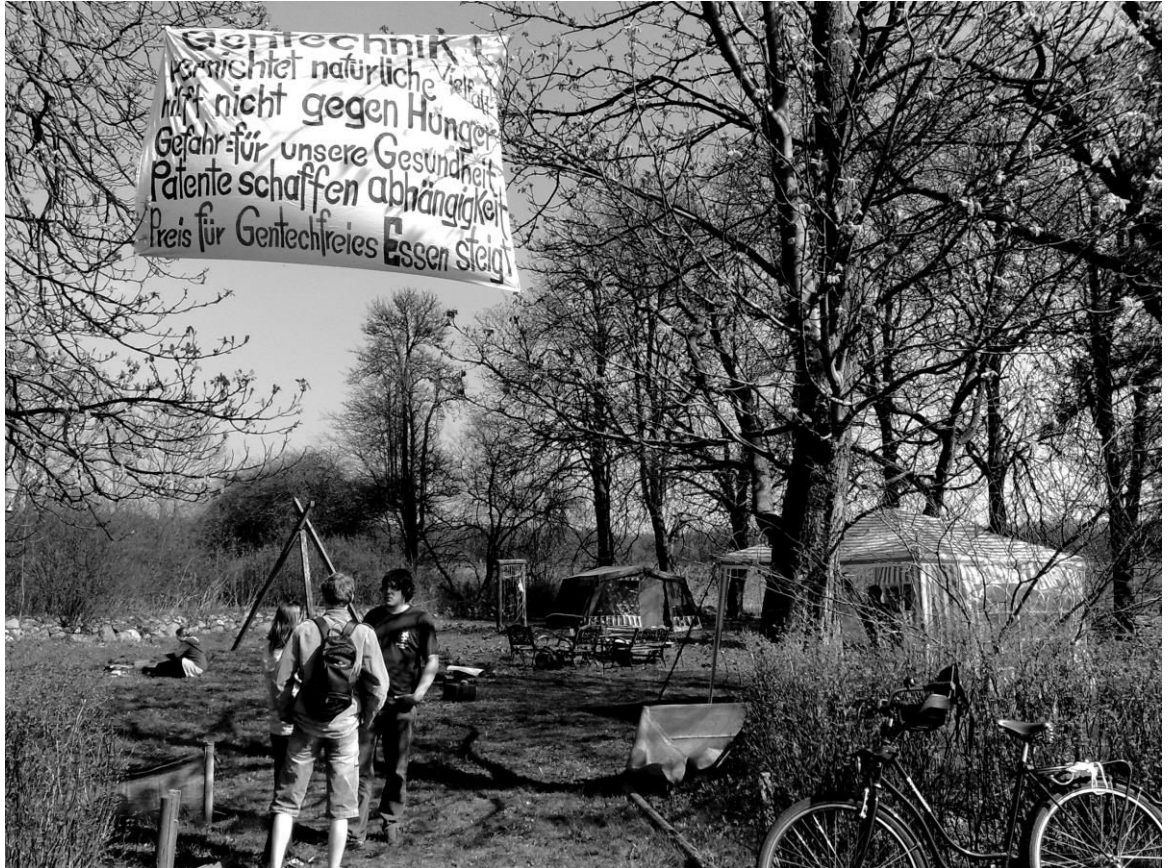 Gentechnik!
vernichtet natürliche Vielfalt
hilft nicht gegen Hunger
Gefahr für unsere Gesundheit
Patente schaffen abhängigkeit
Preis für Gentechfreies Essen steigt